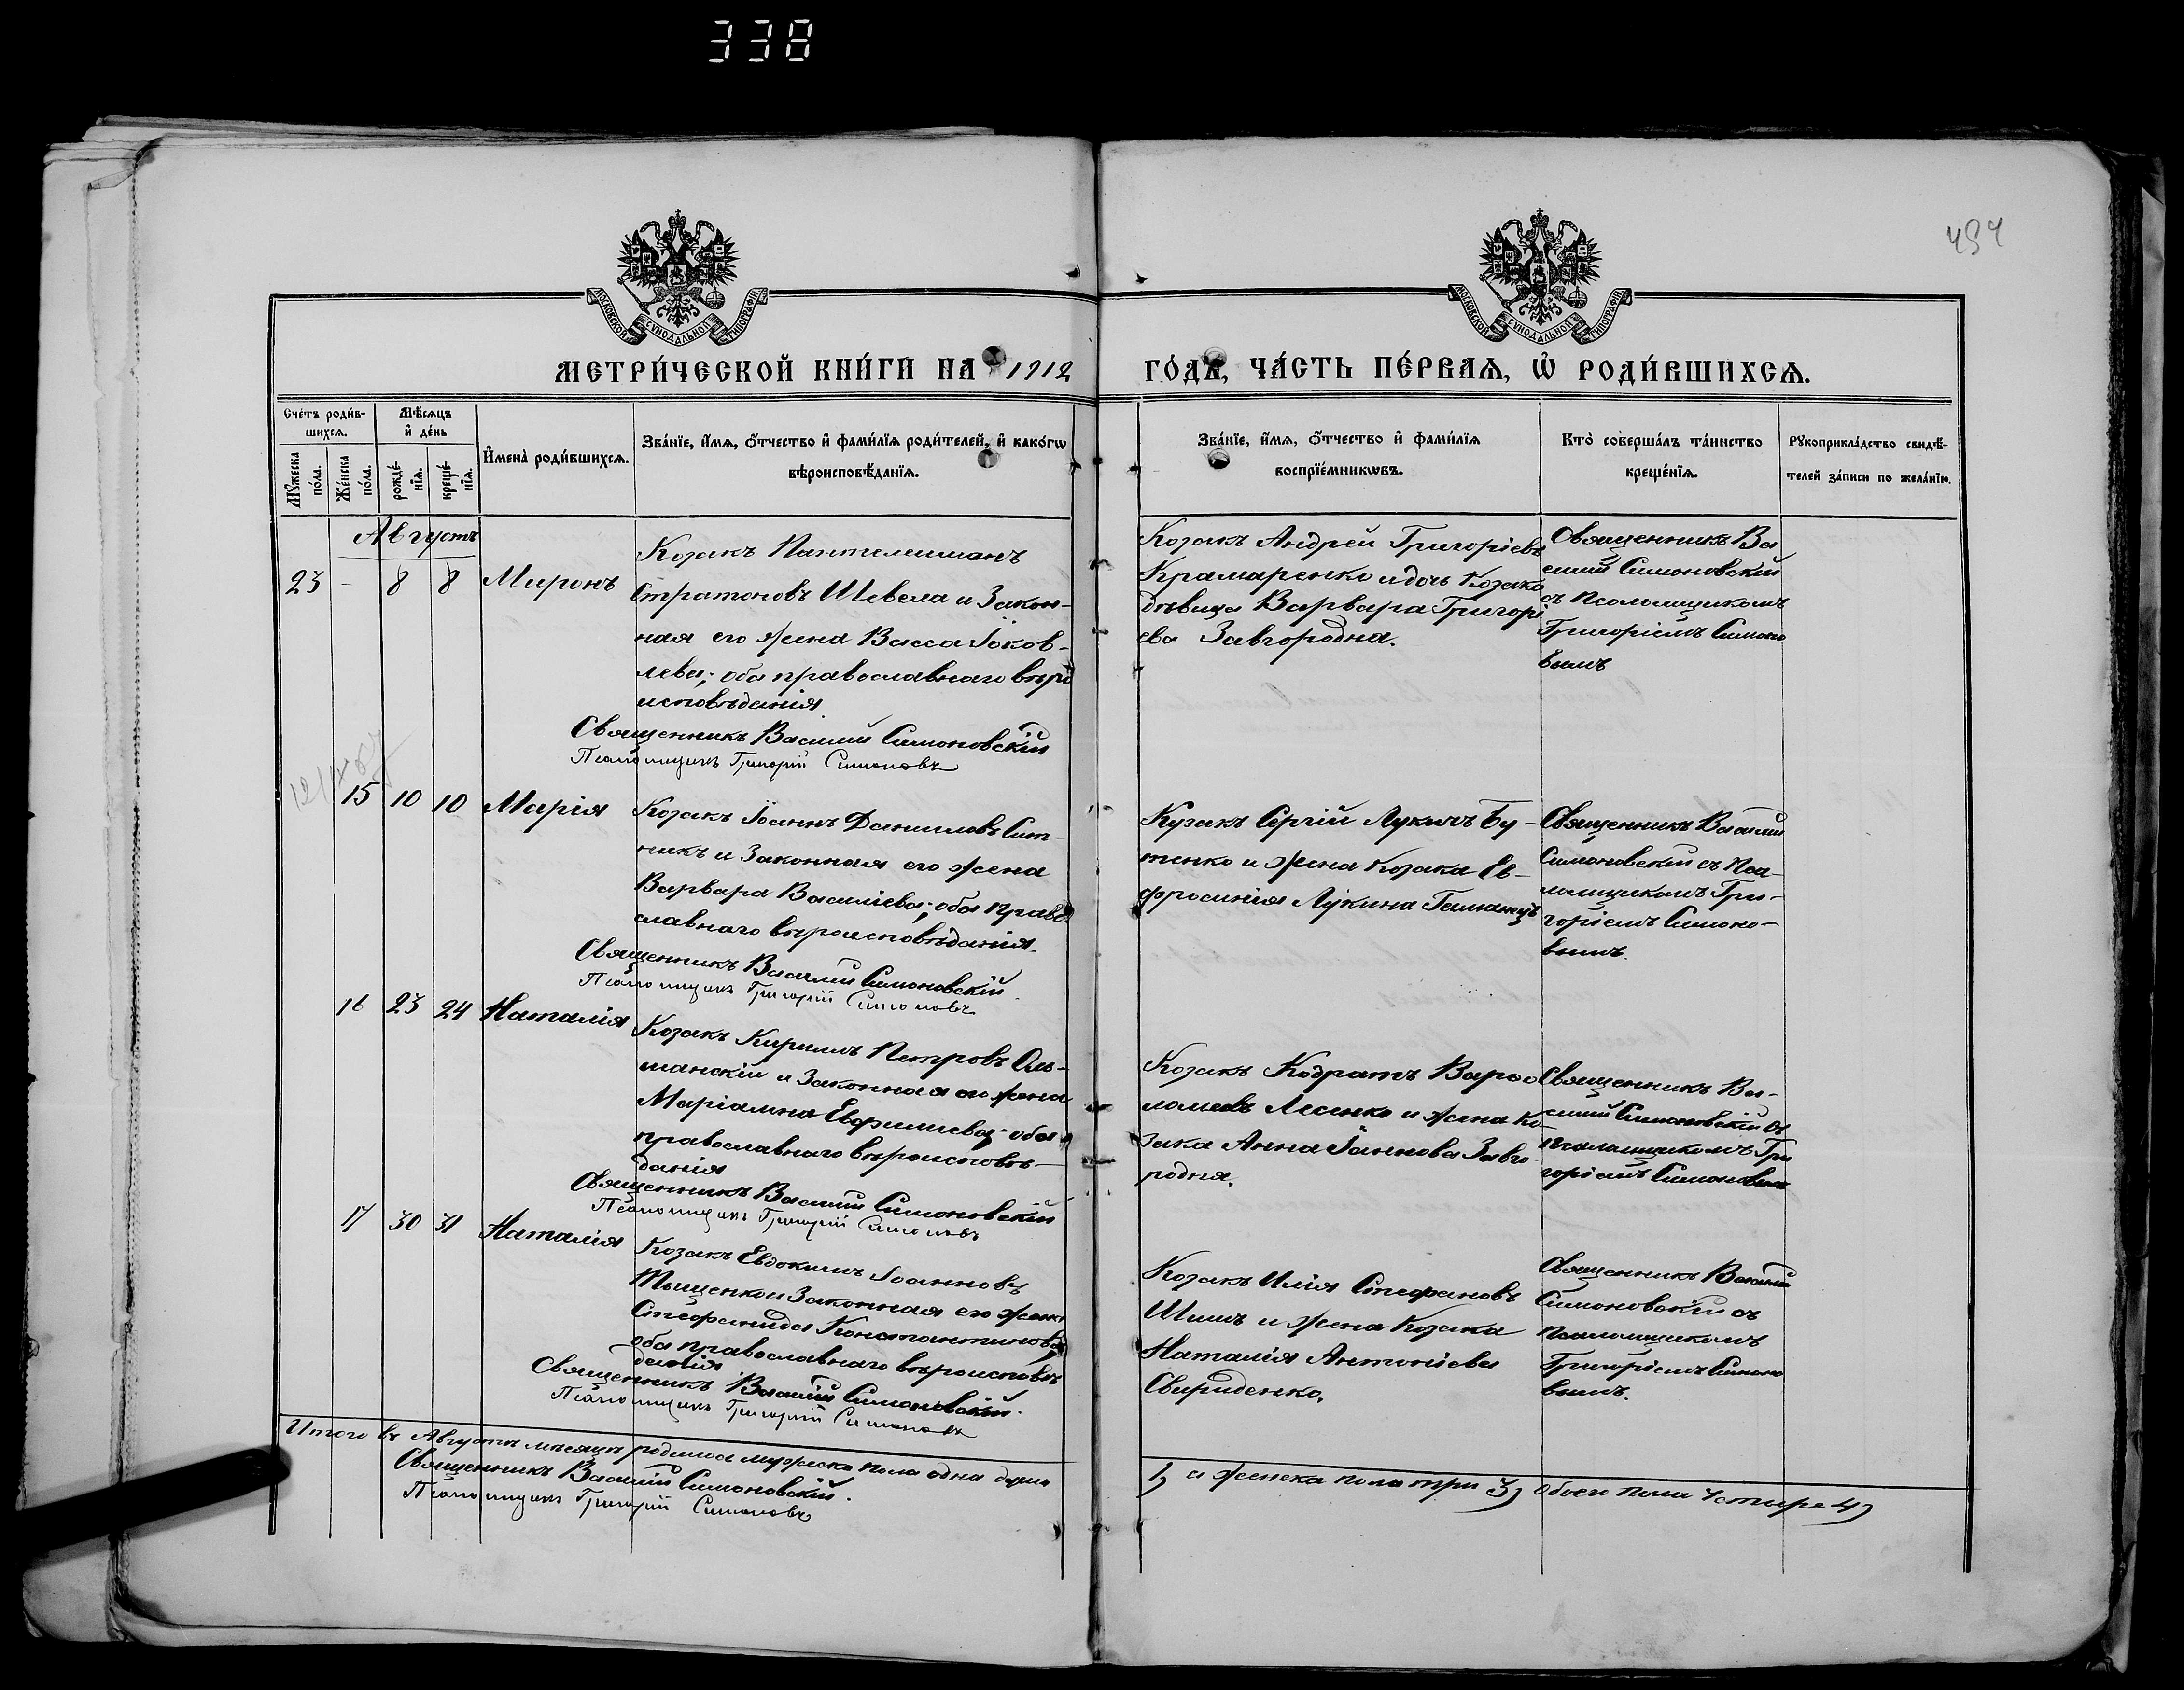 338
494
МОСКОВСКОЙ СУНОДАЛЬНОЙ ТИПОГРАФІИ
МОСКОВСКОЙ СУНОДАЛЬНОЙ ТИПОГРАФІИ
МЕТРИ́ЧЕСКОЙ КНИ́ГИ НА 1912
ГО́ДЪ, ЧА́СТЬ ПЕ́РВАѦ, Ѡ РОДИ́ВШИХСѦ.
Сче́тъ роди́в-
шихсѧ.
Мѣ́сѧцъ
и де́нь
Мꙋ́жеска по́ла.
Же́нска по́ла.
рожде́-
нїѧ.
креще́-
нїѧ.
И҆мена̀ роди́вшихсѧ.
Зва́нїе, и҆́мѧ, о҆́тчество и҆ фами́лїѧ роди́телей, и҆ како́гѡ
вѣроисповѣ́данїѧ.
Зва́нїе, и҆́мѧ, о҆́тчество и҆ фами́лїѧ
воспрїе́мникѡвъ.
Кто̀ соверша́лъ та́инство
креще́нїѧ.
Рꙋкоприкла́дство свидѣ́-
телей за́писи по жела́нїю.
Августъ
23 - 8 8 Миронъ
Козакъ Пантелеимонъ
Стратоновъ Шевела и Закон-
ная его жена Васса Іаков-
лева; оба православнаго вѣро
исповѣданія
Священникъ Василій Симоновскій
Псаломщикъ Григорій Симоновъ
Козакъ Андрей Григоріевъ
Крамаренко и дочь Козака
дѣвица Варвара Григорі
ева Завгородна.
Священникъ Ва
силій Симоновскій
съ Псаломщикомъ
Григоріемъ Симоно
вымъ
15 10 10 Марія
Козакъ Іоаннъ Даниловъ Сит-
никъ и Законная его жена
Варвара Василіева; оба право
славнаго вѣроисповѣданія.
Священникъ Василій Симоновскій.
Псаломщикъ Григорій Симоновъ
Кузакъ Сергій Лукичъ Бу-
тенко и жена Козака Ев-
фросинія Лукина Гаманецъ
Священникъ Василій
Симоновскій съ Пса-
ломщикомъ Гри-
горіемъ Симоно-
вымъ.
16 23 24 Наталія
Козакъ Кириллъ Петровъ Оль-
шанскій и Законная его жена
Маріамна Евфимиева; оба
православнаго вѣроисповѣ-
данія
Священникъ Василій Симоновскій
Псаломщикъ Григорій Симоновъ
Козакъ Кодратъ Варѳо
ломеевъ Лесенко и жена Ко
зака Анна Іаннова Завго
родня.
Священникъ Ва-
силій Симоновскій съ
Псаломщикомъ Гри
горіемъ Симоновымъ
17 30 31 Наталія
Козакъ Евдокимъ Іоанновъ
Тищенко и Законная его жена
Стефанида Константинова;
оба православнаго вѣроисповѣ
данія
Священникъ Василій Симоновскій.
Псаломщикъ Григорій Симоновъ
Козакъ Илія Стефановъ
Шишъ и жена Козака
Наталія Антоніева
Свириденко.
Священникъ Василій
Симоновскій съ
Псаломщикомъ
Григоріемъ Симоно
вымъ.
Итого въ Августѣ мѣсяцѣ родилось мужеска пола одна душа
1, а женска пола три 3, обоего пола Четыре 4,
Священникъ Василій Симоновскій.
Псаломщикъ Григорій Симоновъ